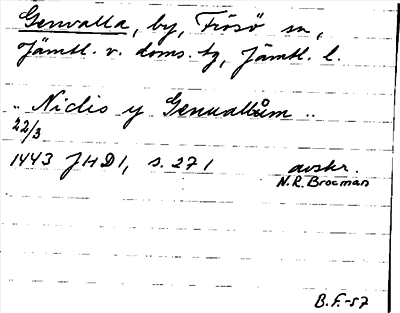 Genvalla, by, Frösö sn,
Jämtl. v. doms. tg, Jämtl. l.
"Niclis y Genualbům"
22/3
1443 JHD1, s. 271 avskr.
N.R. Brocman
B.F.-57